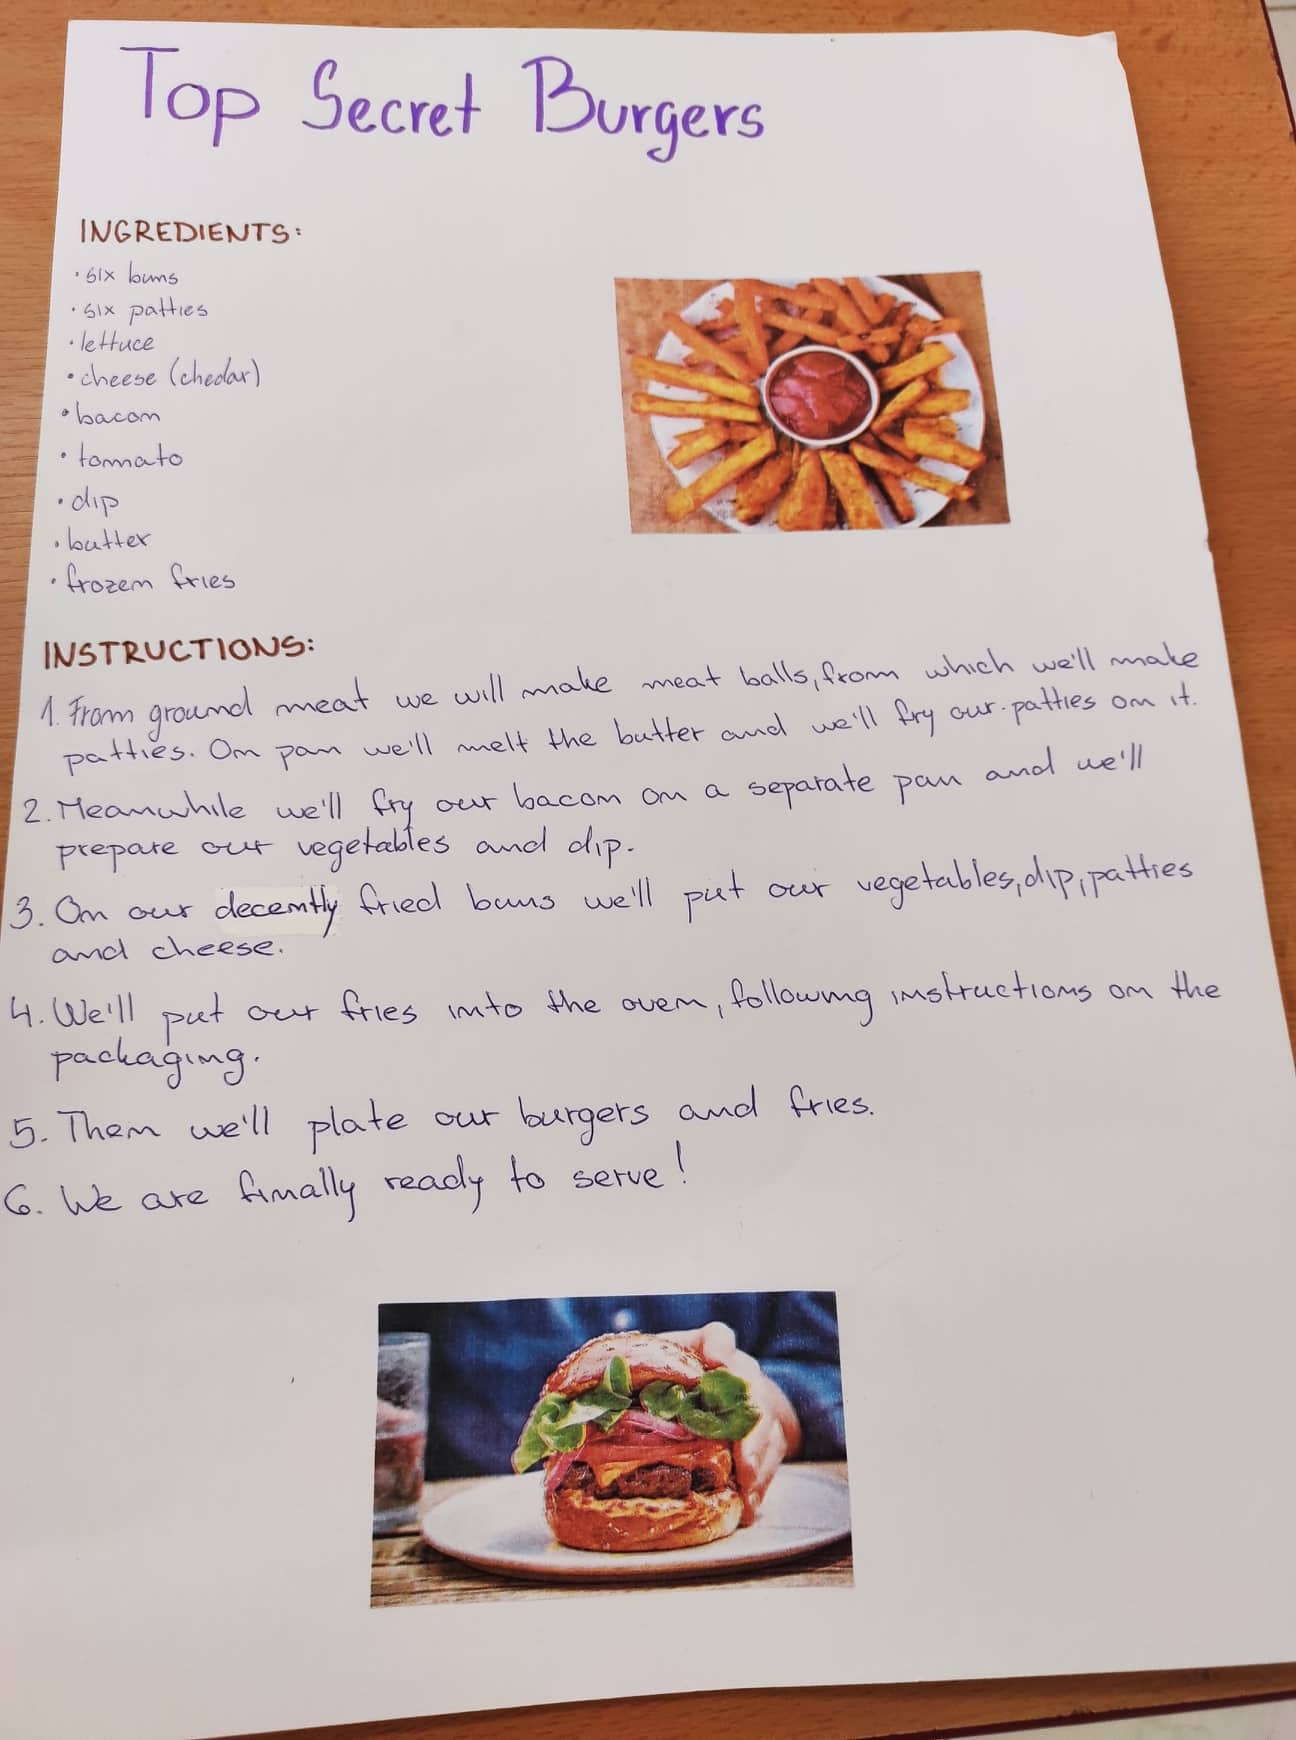 Top Secret Burgers
INGREDIENTS:
• six buns
• six patties
• lettuce
• cheese (chedar)
• bacon
• tomato
• dip
• butter
• frozen fries
INSTRUCTIONS:
1. From ground meat we will make meat balls, from which we'll make
patties. On pan we'll melt the butter and we'll fry our patties on it.
2. Meanwhile we'll fry our bacon on a separate pan and we'll
prepare our vegetables and dip.
3. On our decently fried buns we'll put our vegetables, dip, patties
and cheese.
4. We'll put our fries into the oven, following instructions on the
packaging.
5. Then we'll plate our burgers and fries.
6. We are finally ready to serve!